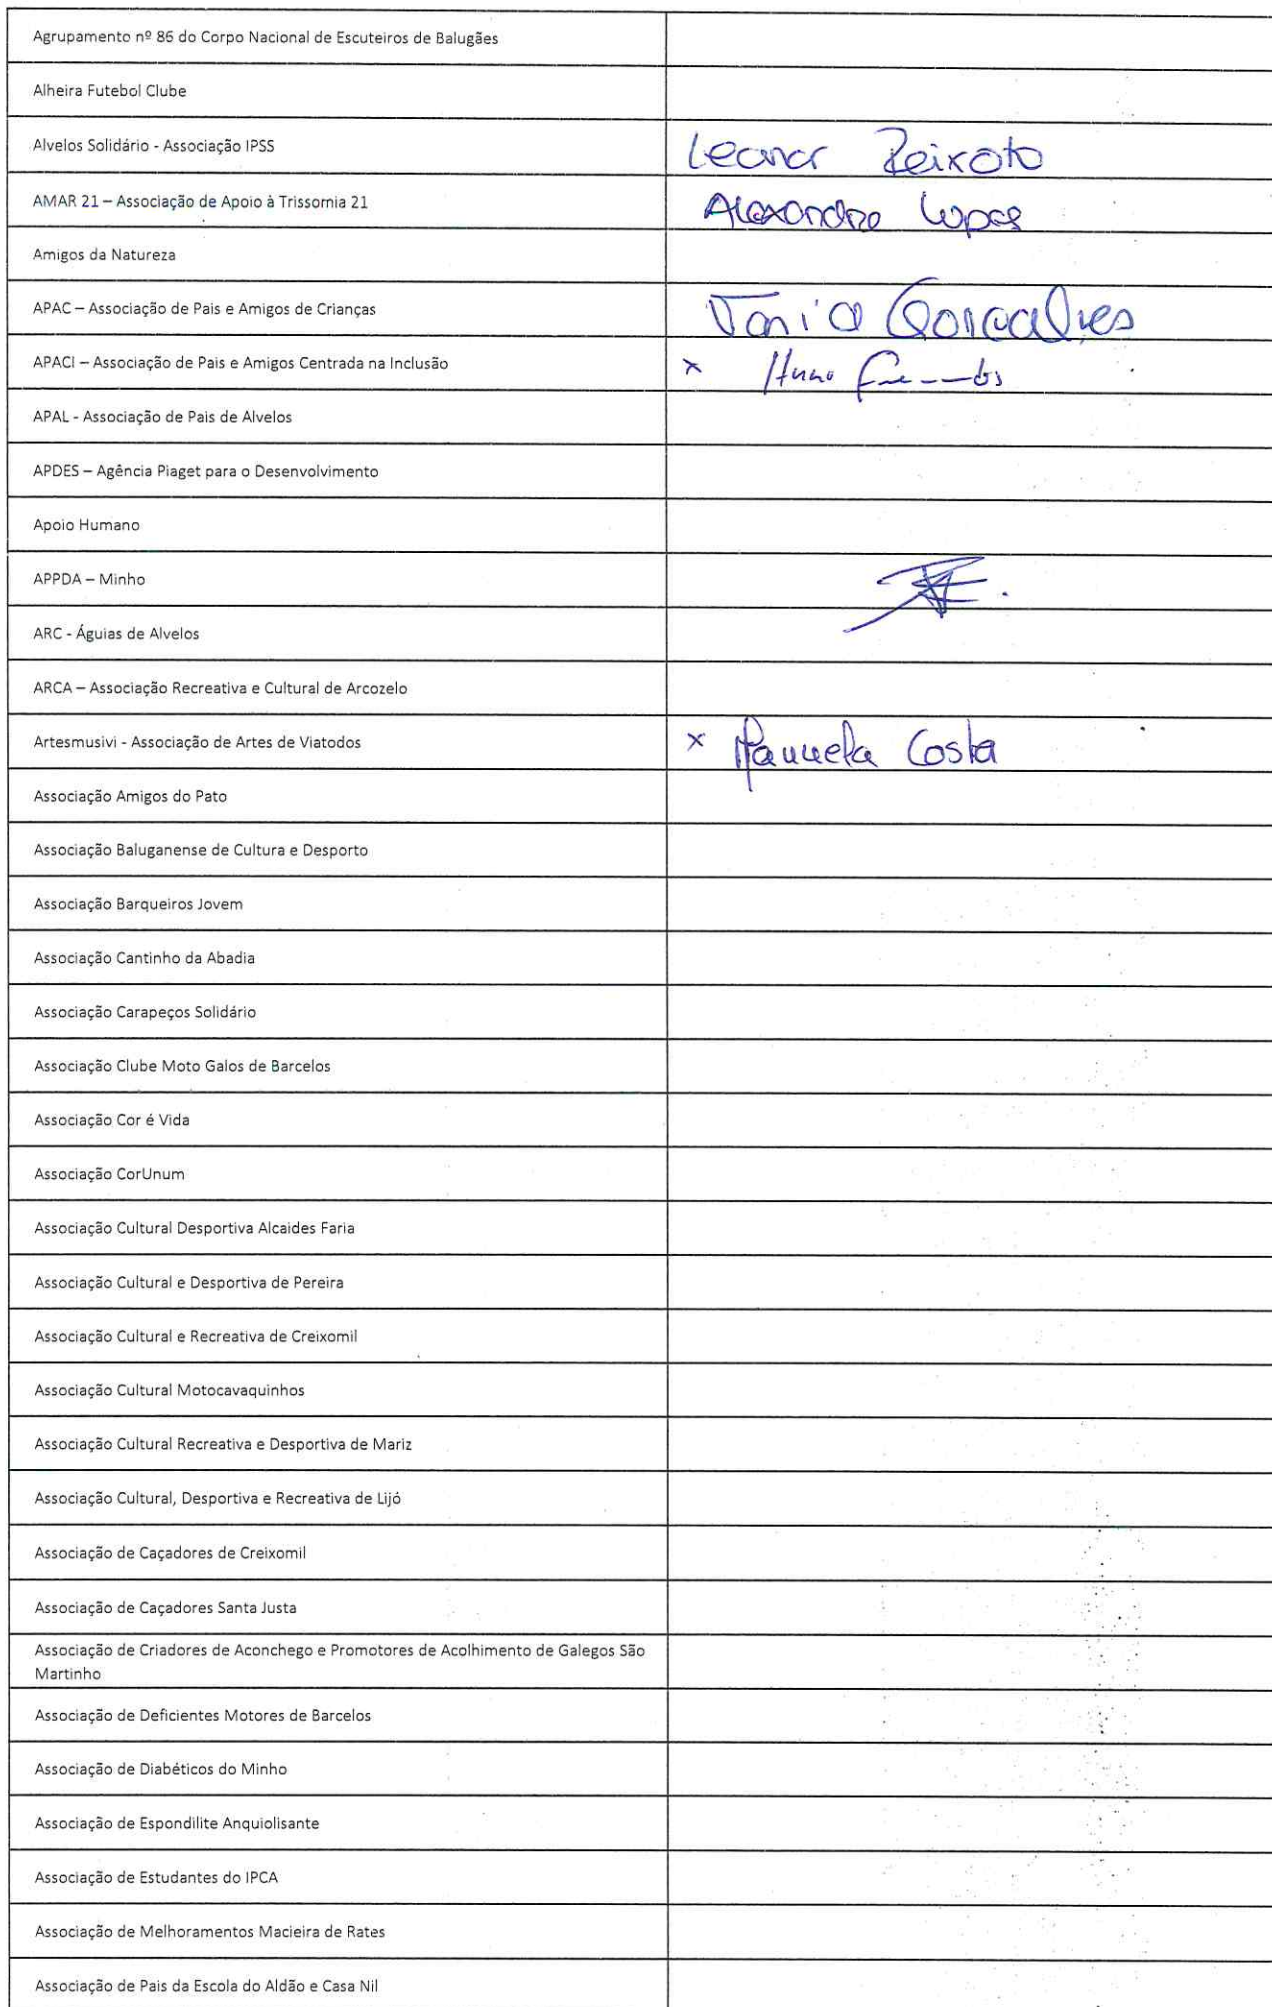 Agrupamento nº 86 do Corpo Nacional de Escuteiros de Balugães
Alheira Futebol Clube
Alvelos Solidário - Associação IPSS Leonor Peixoto
AMAR 21 – Associação de Apoio à Trissomia 21 Alexandra Lopes
Amigos da Natureza
APAC – Associação de Pais e Amigos de Crianças Vania Goncalves
APACI – Associação de Pais e Amigos Centrada na Inclusão x
APAL - Associação de Pais de Alvelos
APDES – Agência Piaget para o Desenvolvimento
Apoio Humano
APPDA – Minho
ARC - Águias de Alvelos
ARCA – Associação Recreativa e Cultural de Arcozelo
Artesmusivi - Associação de Artes de Viatodos x Manuela Costa
Associação Amigos do Pato
Associação Baluganense de Cultura e Desporto
Associação Barqueiros Jovem
Associação Cantinho da Abadia
Associação Carapeços Solidário
Associação Clube Moto Galos de Barcelos
Associação Cor é Vida
Associação CorUnum
Associação Cultural Desportiva Alcaides Faria
Associação Cultural e Desportiva de Pereira
Associação Cultural e Recreativa de Creixomil
Associação Cultural Motocavaquinhos
Associação Cultural Recreativa e Desportiva de Mariz
Associação Cultural, Desportiva e Recreativa de Lijó
Associação de Caçadores de Creixomil
Associação de Caçadores Santa Justa
Associação de Criadores de Aconchego e Promotores de Acolhimento de Galegos São
Martinho
Associação de Deficientes Motores de Barcelos
Associação de Diabéticos do Minho
Associação de Espondilite Anquiolisante
Associação de Estudantes do IPCA
Associação de Melhoramentos Macieira de Rates
Associação de Pais da Escola do Aldão e Casa Nil